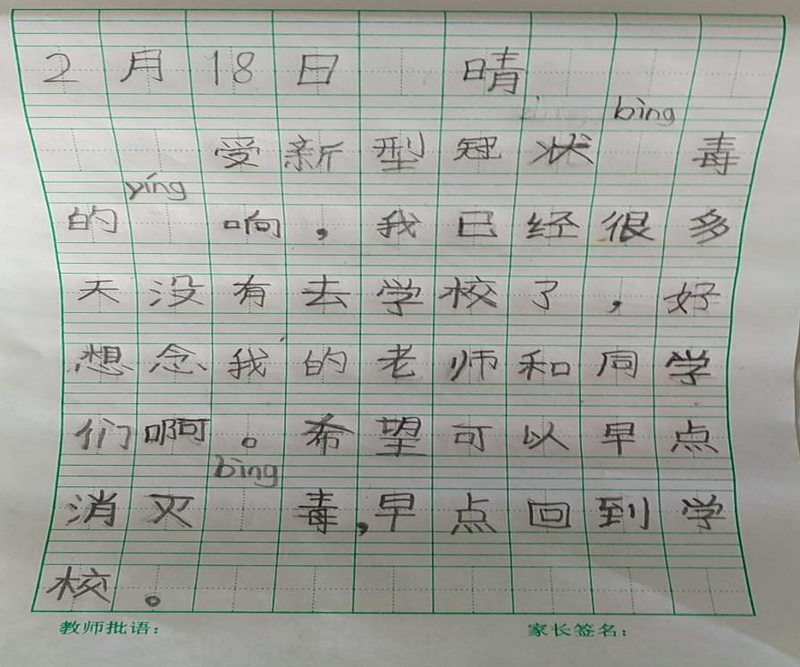 2月18日 晴
受新型冠状bìng毒
的yíng响，我已经很多
天没有去学校了，好
想念我的老师和同学
们啊。希望可以早点
消灭bìng毒，早点回到学
校。
教师批语： 家长签名：